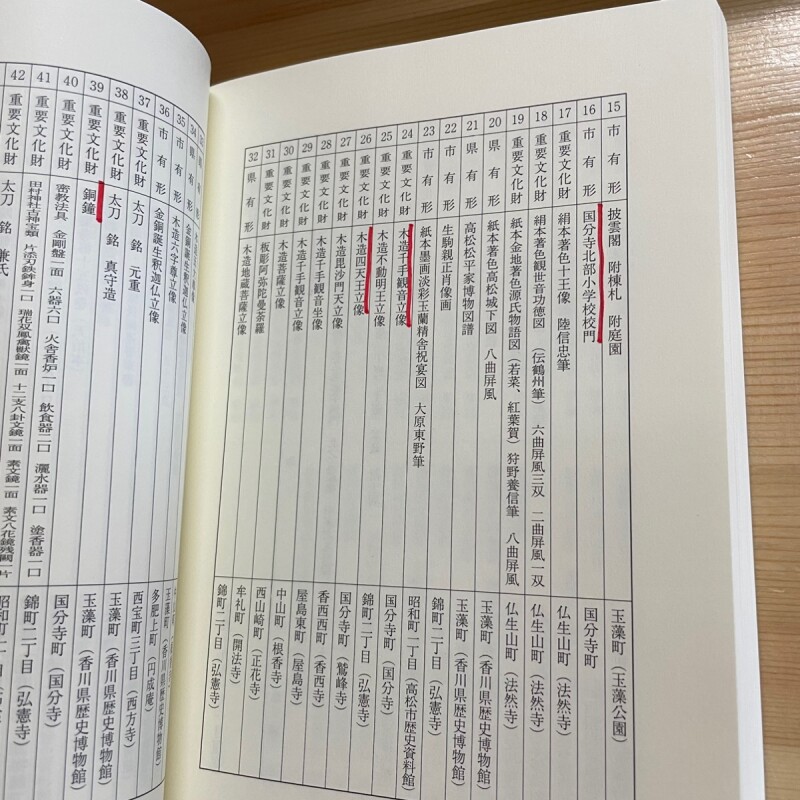 15 市有形 披雲閣 附棟札 附庭園 玉藻町(玉藻公園)
16 市有形 国分寺北部小学校校門 国分寺町
17 重要文化財 絹本著色十王像 陸信忠筆 仏生山町(法然寺)
18 重要文化財 絹本著色観世音功徳図(伝鶴州筆) 六曲屏風三双 二曲屏風一双 仏生山町(法然寺)
19 重要文化財 紙本金地著色源氏物語図(若菜、紅葉賀)狩野養信筆 八曲屏風 仏生山町(法然寺)
20 県有形 紙本著色高松城下図 八曲屏風 玉藻町(香川県歴史博物館)
21 県有形 高松松平家博物図譜 玉藻町(香川県歴史博物館)
22 市有形 生駒親正肖像画 錦町二丁目(弘憲寺)
23 市有形 紙本墨画淡彩玉蘭精舎祝宴図 大原東野筆 昭和町一丁目(高松市歴史資料館)
24 重要文化財 木造千手観音立像 国分寺町(国分寺)
25 重要文化財 木造不動明王立像 錦町二丁目(弘憲寺)
26 重要文化財 木造四天王立像 国分寺町(鷲峰寺)
27 重要文化財 木造毘沙門天立像 香西西町(香西寺)
28 重要文化財 木造千手観音坐像 屋島東町(屋島寺)
29 重要文化財 木造千手観音立像 中山町(根香寺)
30 重要文化財 木造菩薩立像 西山崎町(正花寺)
31 重要文化財 板彫阿弥陀曼荼羅 牟礼町(開法寺)
32 県有形 木造地蔵菩薩立像 錦町二丁目(弘憲寺)
35 市有形 木造六字尊立像
36 市有形 金銅誕生釈迦仏立像 多肥上町(円成庵)
37 重要文化財 太刀 銘 元重 西宝町三丁目(西方寺)
38 重要文化財 太刀 銘 真守造 玉藻町(香川県歴史博物館)
39 重要文化財 銅鐘 国分寺町(国分寺)
40 重要文化財 密教法具 金剛盤一面 六器六口 火舎香炉一口 飲食器二口 灑水器一口 塗香器一口 錦町二丁目(弘憲寺)
41 重要文化財 田村神社古神宝類 片添刃鉄鉾身一口 瑞花双鳳禽獣鏡一面 十二支八卦文鏡一面 素文鏡一面 素文八花鏡残闕一片
42 重要文化財 太刀 銘 兼氏 昭和町